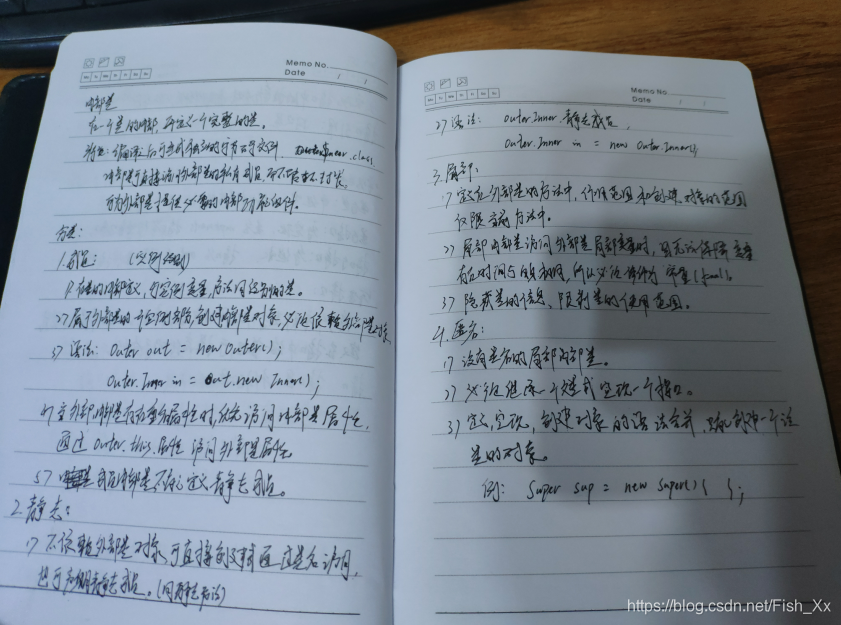 Memo No.
Date / /
Mo Tu We Th Fr Sa Su
内部类
在一个类的内部再定义一个完整的类。
特点: 编译后可生成独立的字节码文件 Outer$Inner.class
内部类可直接访问外部类的私有成员,而不破坏封装。
可为外部类提供必要的内部功能组件。
分类:
1. 成员: (实例级别)
1) 在类的内部定义,与实例变量,方法同级别的类。
2) 属于外部类的一个实例部分,创建内部类对象,必须依赖外部类对象
3) 语法: Outer out = new Outer();
Outer.Inner in = out.new Inner();
4) 当外部内部类存在重名属性时,优先访问内部类属性,
通过 Outer.this.属性 访问外部类属性
5) 成员内部类不能定义静态成员。
2. 静态:
1) 不依赖外部类对象,可直接创建或通过类名访问,
也可声明静态成员。(同静态方法)
Memo No.
Date / /
Mo Tu We Th Fr Sa Su
2) 语法: Outer.Inner.静态成员;
Outer.Inner in = new Outer.Inner();
3. 局部:
1) 定义在外部类的方法中,作用范围和创建对象的范围
仅限当前方法中。
2) 局部内部类访问外部类局部变量时,因无法保障变量
存在时间与自身相同,所以必须修饰为常量(final)。
3) 隐藏类的信息,限制类的使用范围。
4. 匿名:
1) 没有类名的局部内部类。
2) 必须继承一个父类或实现一个接口。
3) 定义,实现,创建对象的语法合并,只能创建一个该
类的对象。
例: Super sup = new Super() { };
https://blog.csdn.net/Fish_Xx